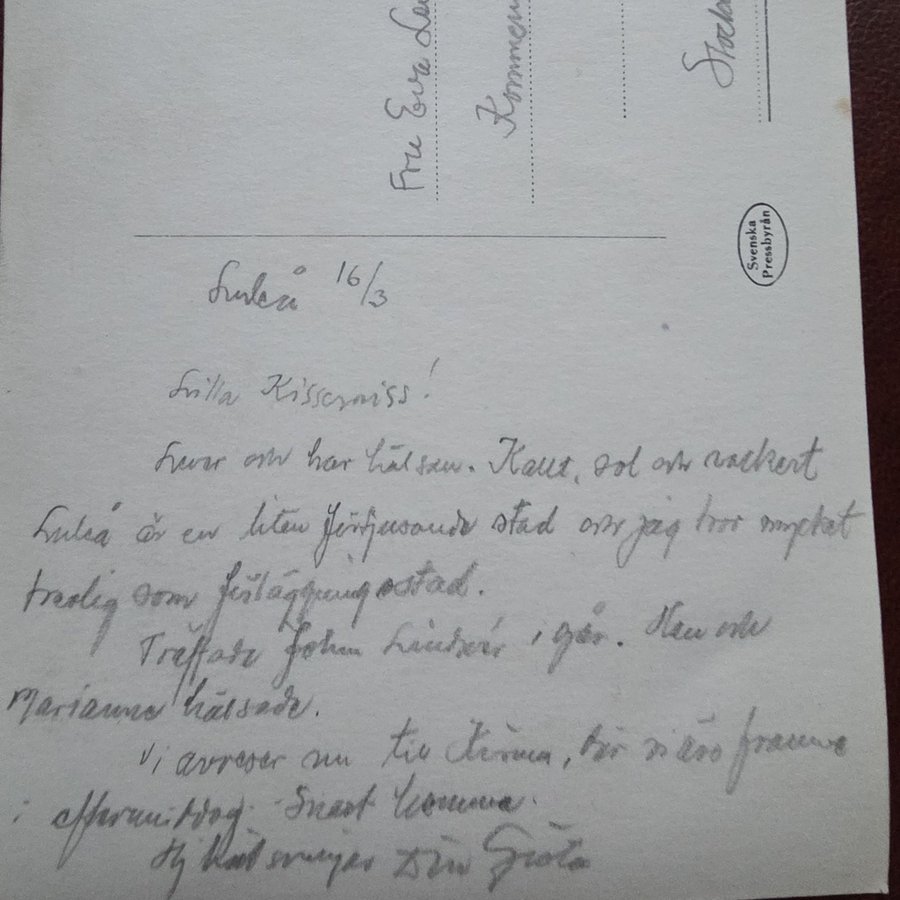 Fru Eva
Stock
Svenska
Pressbyrån
Luleå 16/3
Lilla Kissemiss!
Lever och har hälsan. Kallt, sol och vackert
Luleå är en liten förtjusande stad och jag tror mycket
trevlig som förläggningsstad.
Träffade John Lindner i går. Han och
Marianne hälsade.
Vi avreser nu till Kiruna, där vi äro framme
i eftermiddag. Snart hemma.
Din Gösta